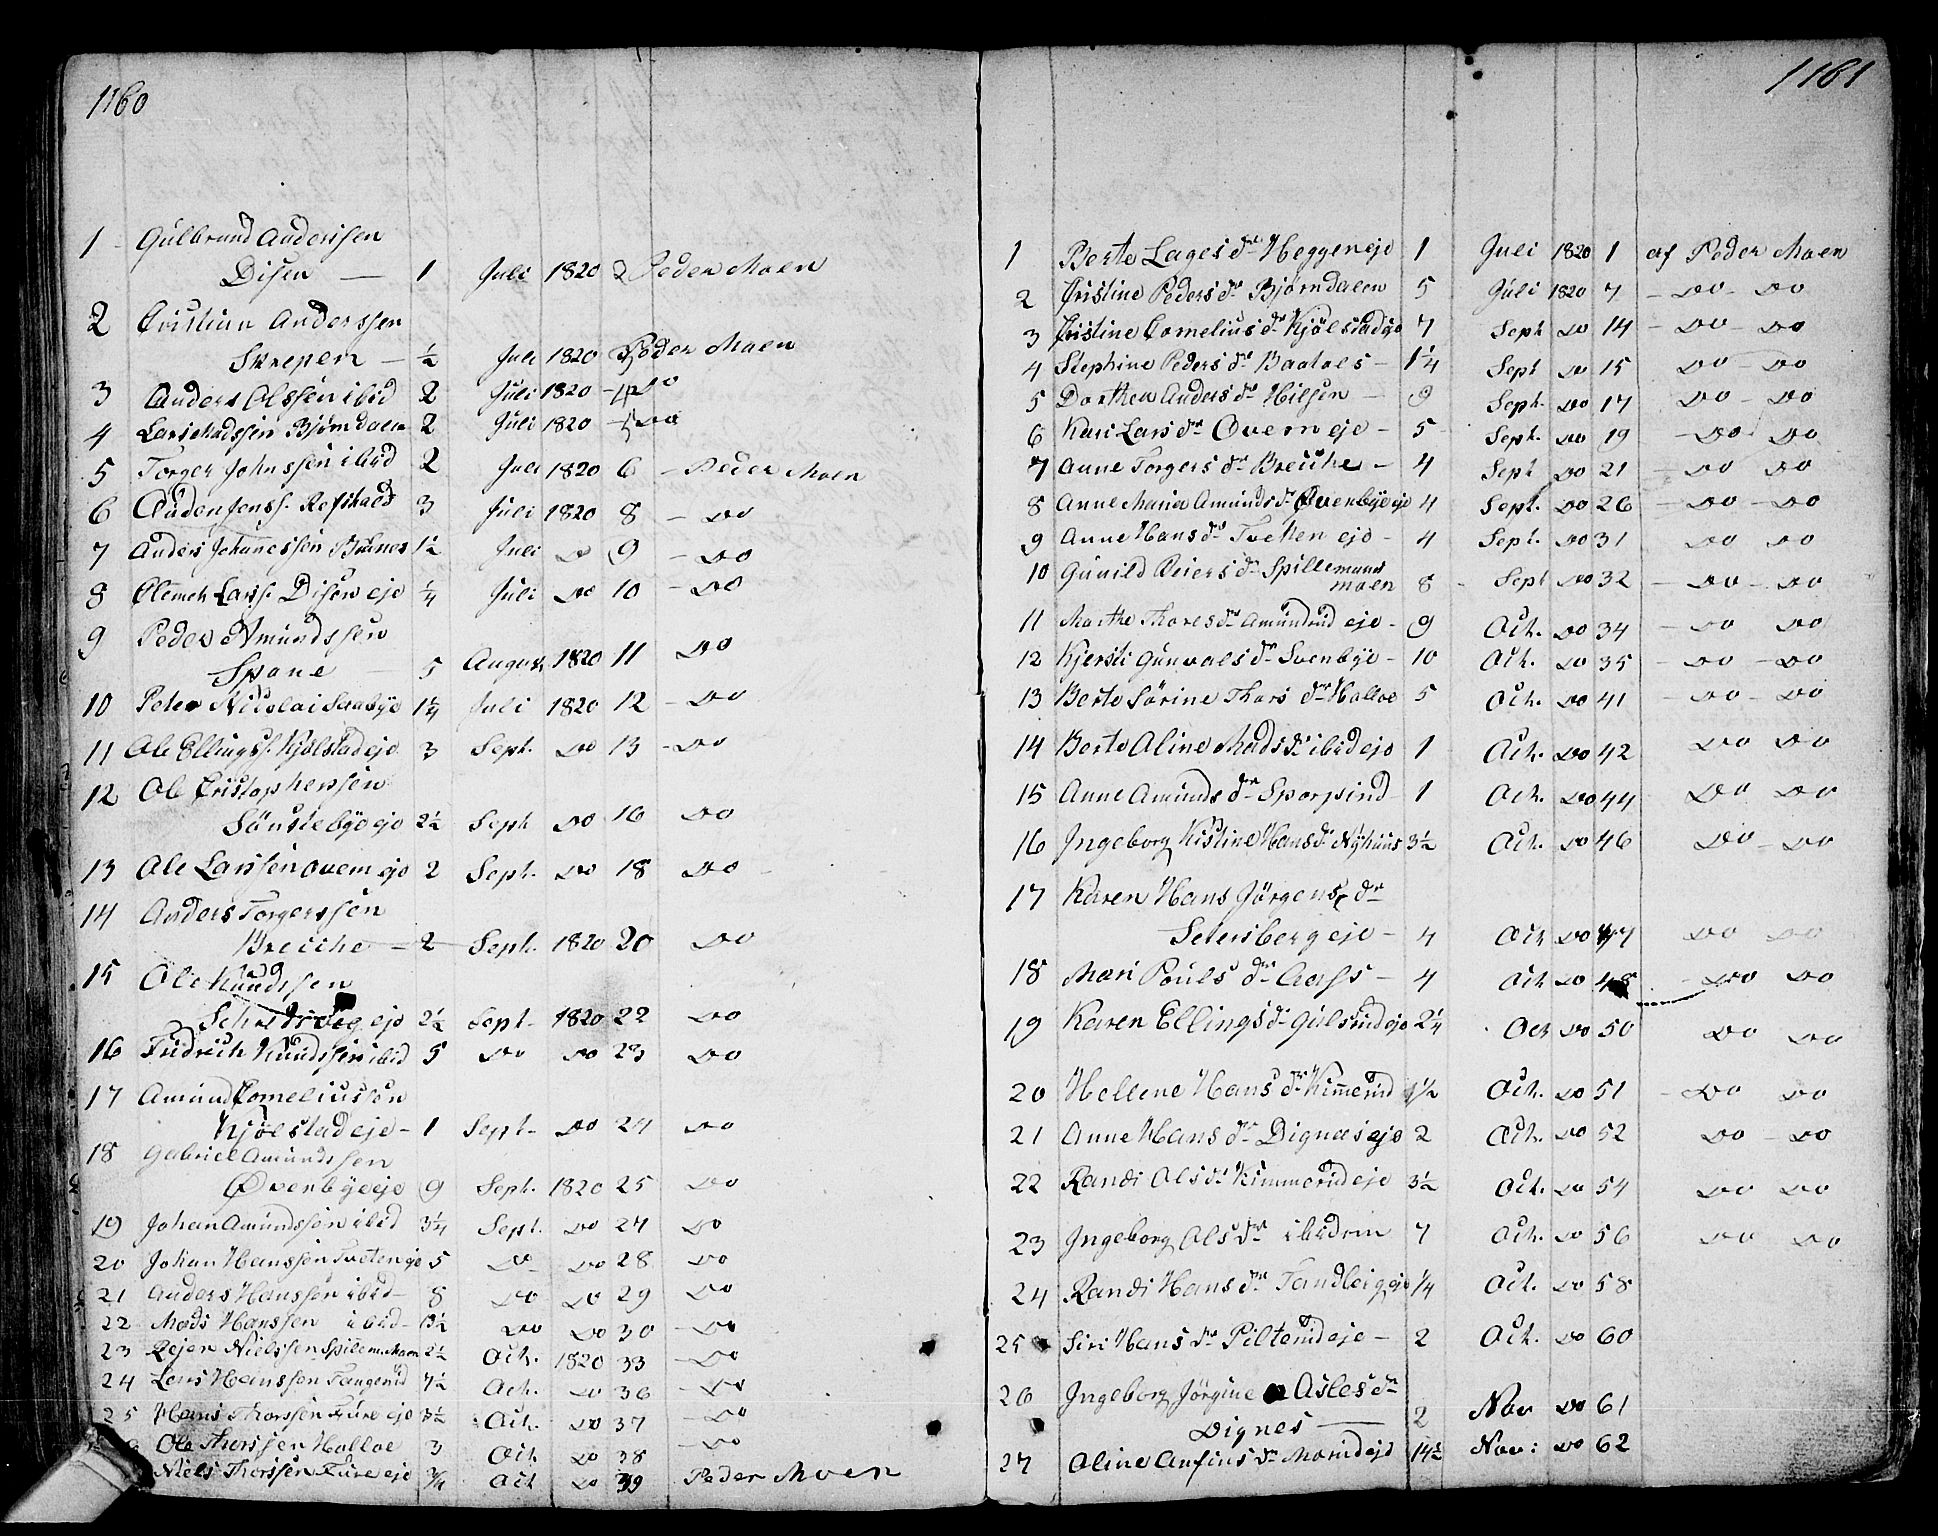 1160
1 Gulbrand Anderssen
Disen — 1 Juli 1820 2 Peder Moen
2 Cristian Anderssen
Skrepen — ½ Juli 1820 3 Peder Moen
3 Anders Olssen ibid 2 Juli 1820 – 4 Do
4 Lars Madssen Bjørndalen 2 Juli 1820 – 5 Do
5 Torger Johnssen ibid 2 Juli 1820 6 – Peder Moen
6 Auden Jenss. Refskald 3 Juli 1820 8 – Do
7 Anders Johannessen 1½ Juli Do 9 – Do
8 Clemet Larss. Disen eje ¼ Juli Do 10 – Do
9 Peder Amundssen
Spone 5 August 1820 11 Do
10 Peter Nicolai 1¼ Juli 1820 12 – Do
11 Ole Ellingss. Kjølstad eje 3 Sept. Do 13 – Do
12 Ole Cristophersen
Sønstebye eje 2½ Sept Do 16 Do
13 Ole Larssen Overn eje 2 Sept. Do 18 Do
14 Anders Torgerssen
Breiche – 2 Sept. 1820 20 Do
15 Ole Knudssen
eje 2½ Sept – 1820 22 Do
16 Fridrich Knudssen ibid 5 Do Do 23 Do
17 Amund Corneliussen
Kjølstad eje – 1 Sept – Do 24 Do
18 Gabriel Amundssen
Øvenbye eje 9 Sept. 1820 25 Do
19 Johan Amundssen ibid 3¼ Sept. Do 27 Do
20 Johan Hanssen Tveten eje 5 Do Do 28 Do
21 Anders Hanssen ibid – 8 Do Do 29 Do
22 Mads Hanssen ibid – 1½ Do Do 30 – Do
23 Rejer Nielssen Spillem. Moen 2½ Oct. 1820 33 – Do
24 Lars Hanssen 7½ Oct. Do 36 – Do
25 Hans Thorssen Fure eje 3½ Oct. Do 37 – Do
Ole Thorssen Holloe 3 Oct Do 38 – Do
Niels Thorssen Fure eje ¾ Oct Do 39 Peder Moen
1161
1 Berte Lages dtr Heggen eje 1 Juli 1820 1 af Peder Moen
2 Cristine Peders dtr Bjørndalen 5 Juli 1820 7 – Do – Do
3 Cristine Cornelius dtr Kjølstad eje 7 Sept Do 14 – Do – Do
4 Stephine Peders dtr Baaloes – 1¼ Sept Do 15 Do – Do
5 Dorthea Anders dtr Hilsen – 9 Sept. Do 17 Do – Do
6 Kari Lars dtr Overn eje – 5 Sept. Do 19 – Do Do
7 Anne Torgers dtr Breiche – 4 Sept Do 21 – Do Do
8 Anne Maria Amunds dtr Øvenbye eje 4 Sept. Do 26 – Do – Do
9 Anne Hans dtr Tveten eje – 4 Sept. Do 31 Do Do
10 Gunild Reiers dtr Spillemands
moen 8 – Sept Do 32 – Do – Do
11 Marthe Thores dtr Amundrud eje – 9 Oct. Do 34 – Do Do
12 Kjersti Gunvals dtr Svenbye – 10 Oct. Do 35 – Do – Do
13 Berte Sørine Thors dtr Holloe 5 Oct. Do 41 – Do – Do
14 Berte Aline Mads dtr ibid eje 1 Oct. Do 42 Do Do
15 Anne Amunds dtr Sporpind 1 Oct. Do 44 Do Do
16 Ingeborg Kistine Hans dtr Nyhuus 3½ Oct. Do 46 Do – Do
17 Karen Hans Jørgens dtr
Setersberg eje – 4 Oct Do 47 Do Do
18 Mari Pouls dtr Aass – 4 Oct Do 48 – Do Do
19 Karen Ellings dtr Gulsrud eje 2¼ Oct Do 50 Do Do
20 Hellene Hans dtr Kimmerud 1½ Oct. Do 51 – Do Do
21 Anne Hans dtr Dignes eje 2 Oct. Do 52 Do – Do
22 Randi Ols dtr Kimmerud eje 3½ Oct. Do 54 Do Do
23 Ingeborg Ols dtr ibidem 7 Oct. Do 56 Do Do
24 Randi Hans dtr Tandberg eje ¼ Oct. Do 58
25 Siri Hans dtr Piltorud eje – 2 Oct. Do 60
26 Ingeborg Jørgine Asles dtr
Dignes — 2 Nov Do 61
27 Oline Anfins dtr Morud eje 14½ Nov: Do 62